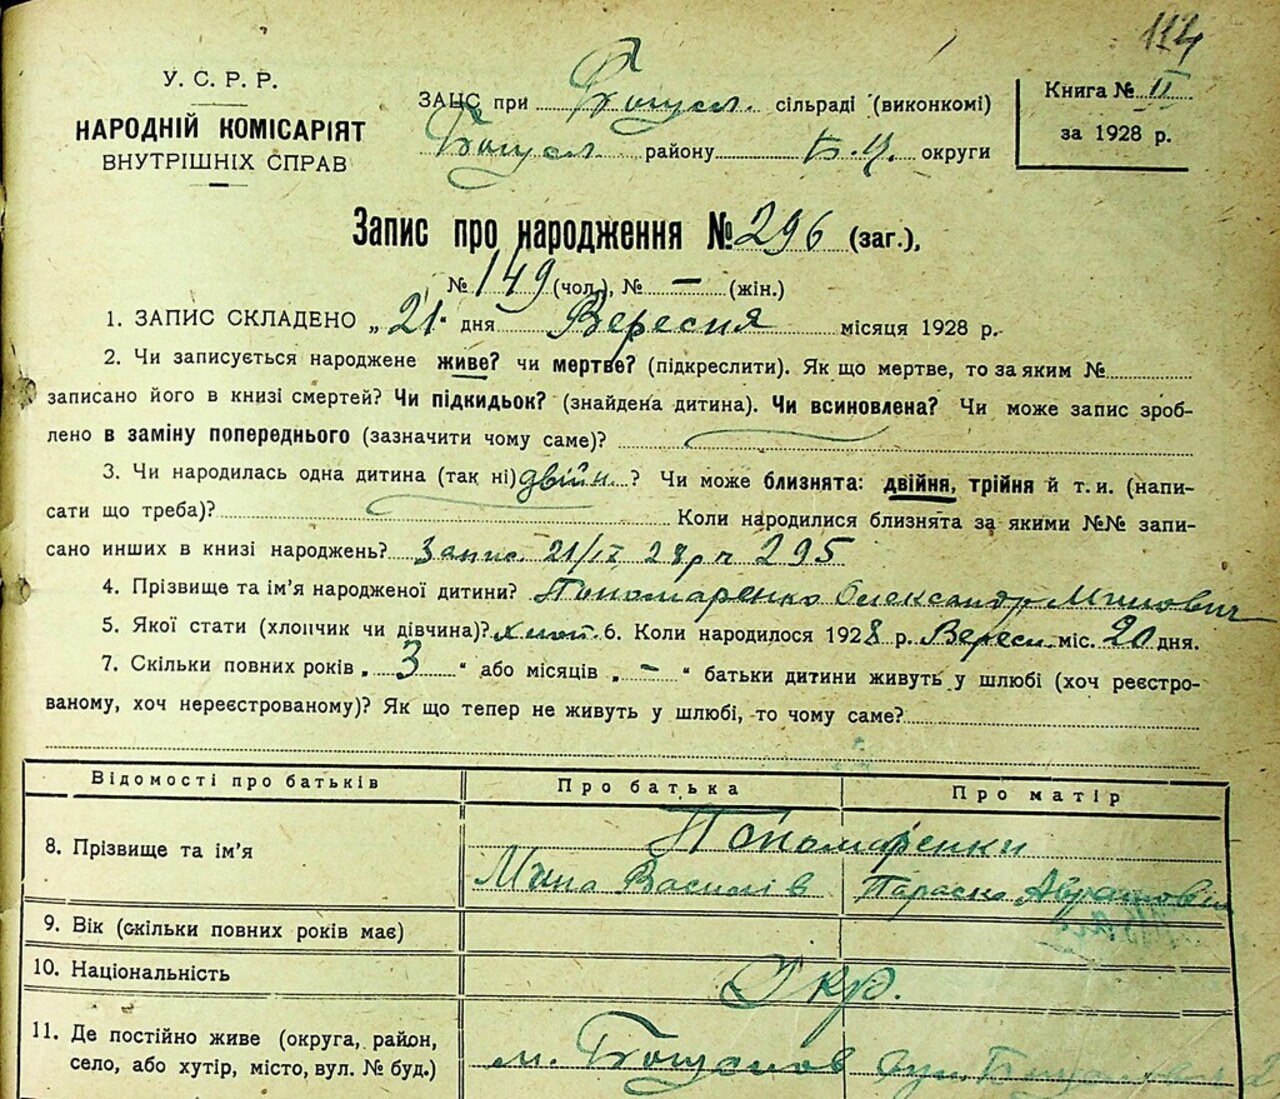 114
У. С. Р. Р.
НАРОДНІЙ КОМІСАРІЯТ
ВНУТРІШНІХ СПРАВ
ЗАЦС при Богусл. сільраді (виконкомі)
Богусл. району Б.Ц. округи
Книга № II
за 1928 р.
Запис про народження № 296 (заг.),
№ 149 (чол.), № — (жін.)
1. ЗАПИС СКЛАДЕНО „21“ дня Вересня місяця 1928 р.
2. Чи записується народжене живе? чи мертве? (підкреслити). Як що мертве, то за яким №
записано його в книзі смертей? Чи підкидьок? (знайдена дитина). Чи всиновлена? Чи може запис зроб-
лено в заміну попереднього (зазначити чому саме)?
3. Чи народилась одна дитина (так ні) двійн. ? Чи може близнята: двійня, трійня й т. и. (напи-
сати що треба)? Коли народилися близнята за якими №№ запи-
сано инших в книзі народжень? Запис 21/IX 28р ч 295
4. Прізвище та ім'я народженої дитини? Пономаренко Олександр Минович
5. Якої стати (хлопчик чи дівчина)? хлоп. 6. Коли народилося 1928 р. Вересн. міс. 20 дня.
7. Скільки повних років „ 3 “ або місяців „ — “ батьки дитини живуть у шлюбі (хоч реєстро-
ваному, хоч нереєстрованому)? Як що тепер не живуть у шлюбі, то чому саме?
Відомості про батьків Про батька Про матір
8. Прізвище та ім'я Пономаренки
Мина Василів Параска Авратовн
9. Вік (скільки повних років має)
10. Національність Укр.
11. Де постійно живе (округа, район,
село, або хутір, місто, вул. № буд.) м.